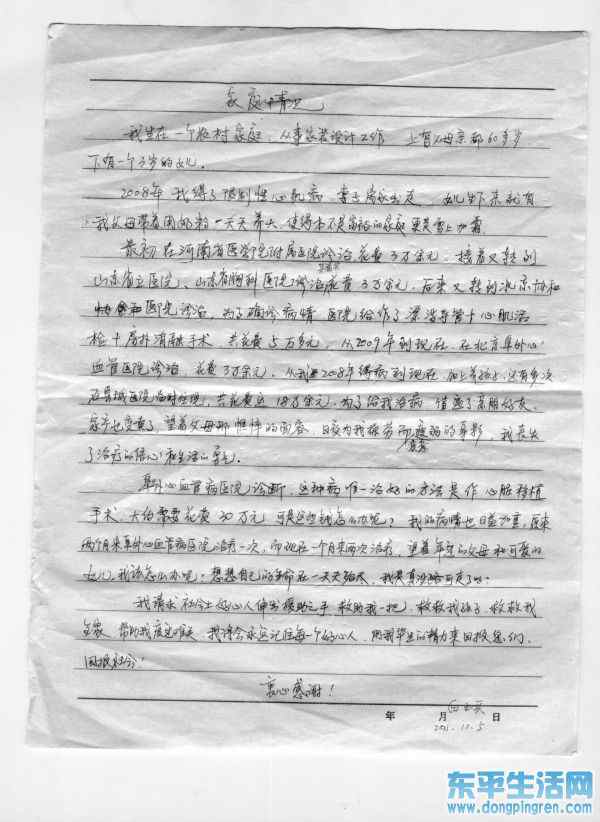 家庭情况
我生在一个农村家庭，从事家装设计工作，上有父母亲都60多岁
下有一个3岁的女儿。
2008年我得了限制性心肌病，妻子离家出走，女儿
我父母带着用奶粉一天天养大，使得本不是富裕的家庭更是雪上加霜
最初在河南省医学院附属医院诊治花费3万余元，接着又转到
山东省立医院、山东省胸科医院诊治花费3万余元，后来又转到北京协和
医院诊治，为了确诊病情医院给作了 导管十心肌活
检十房扑消融手术，共花费5万多元，从2009年到现在，在北京阜外心
血管医院诊治，花费3万余元，从我2008年得病到现在，加上 还有多次
在县城医院临时处理，共花费达18万余元，为了给我治病，借遍了亲朋好友，
家产也变卖了，望着父母那憔悴的面容，日夜为我操劳而疲惫的身影，我丧失
了治疗的信心和生活的勇气。
阜外心血管病医院诊断，这种病唯一治好的方法是作心脏移植
手术，大约需要花费30万元，可是这些钱怎么办呢？我的病情也日益加重，原来
两个月来阜外心血管病医院治疗一次，而现在一个月来两次治疗，望着年迈的父母和可爱的
女儿我该怎么办呢，想想自己的生命在一天天缩尽，我是真没路可走了呀。
我请求社会上好心人伸出援助之手，救助我一把，救救我孩子，救救我
全家，帮助我度过难关，我将会永远记住每一个好心人，用我毕生的精力来回报您们，
回报社会！
衷心感谢！
年 月 日
2011.11.5
东平生活网
www.dongpingren.com